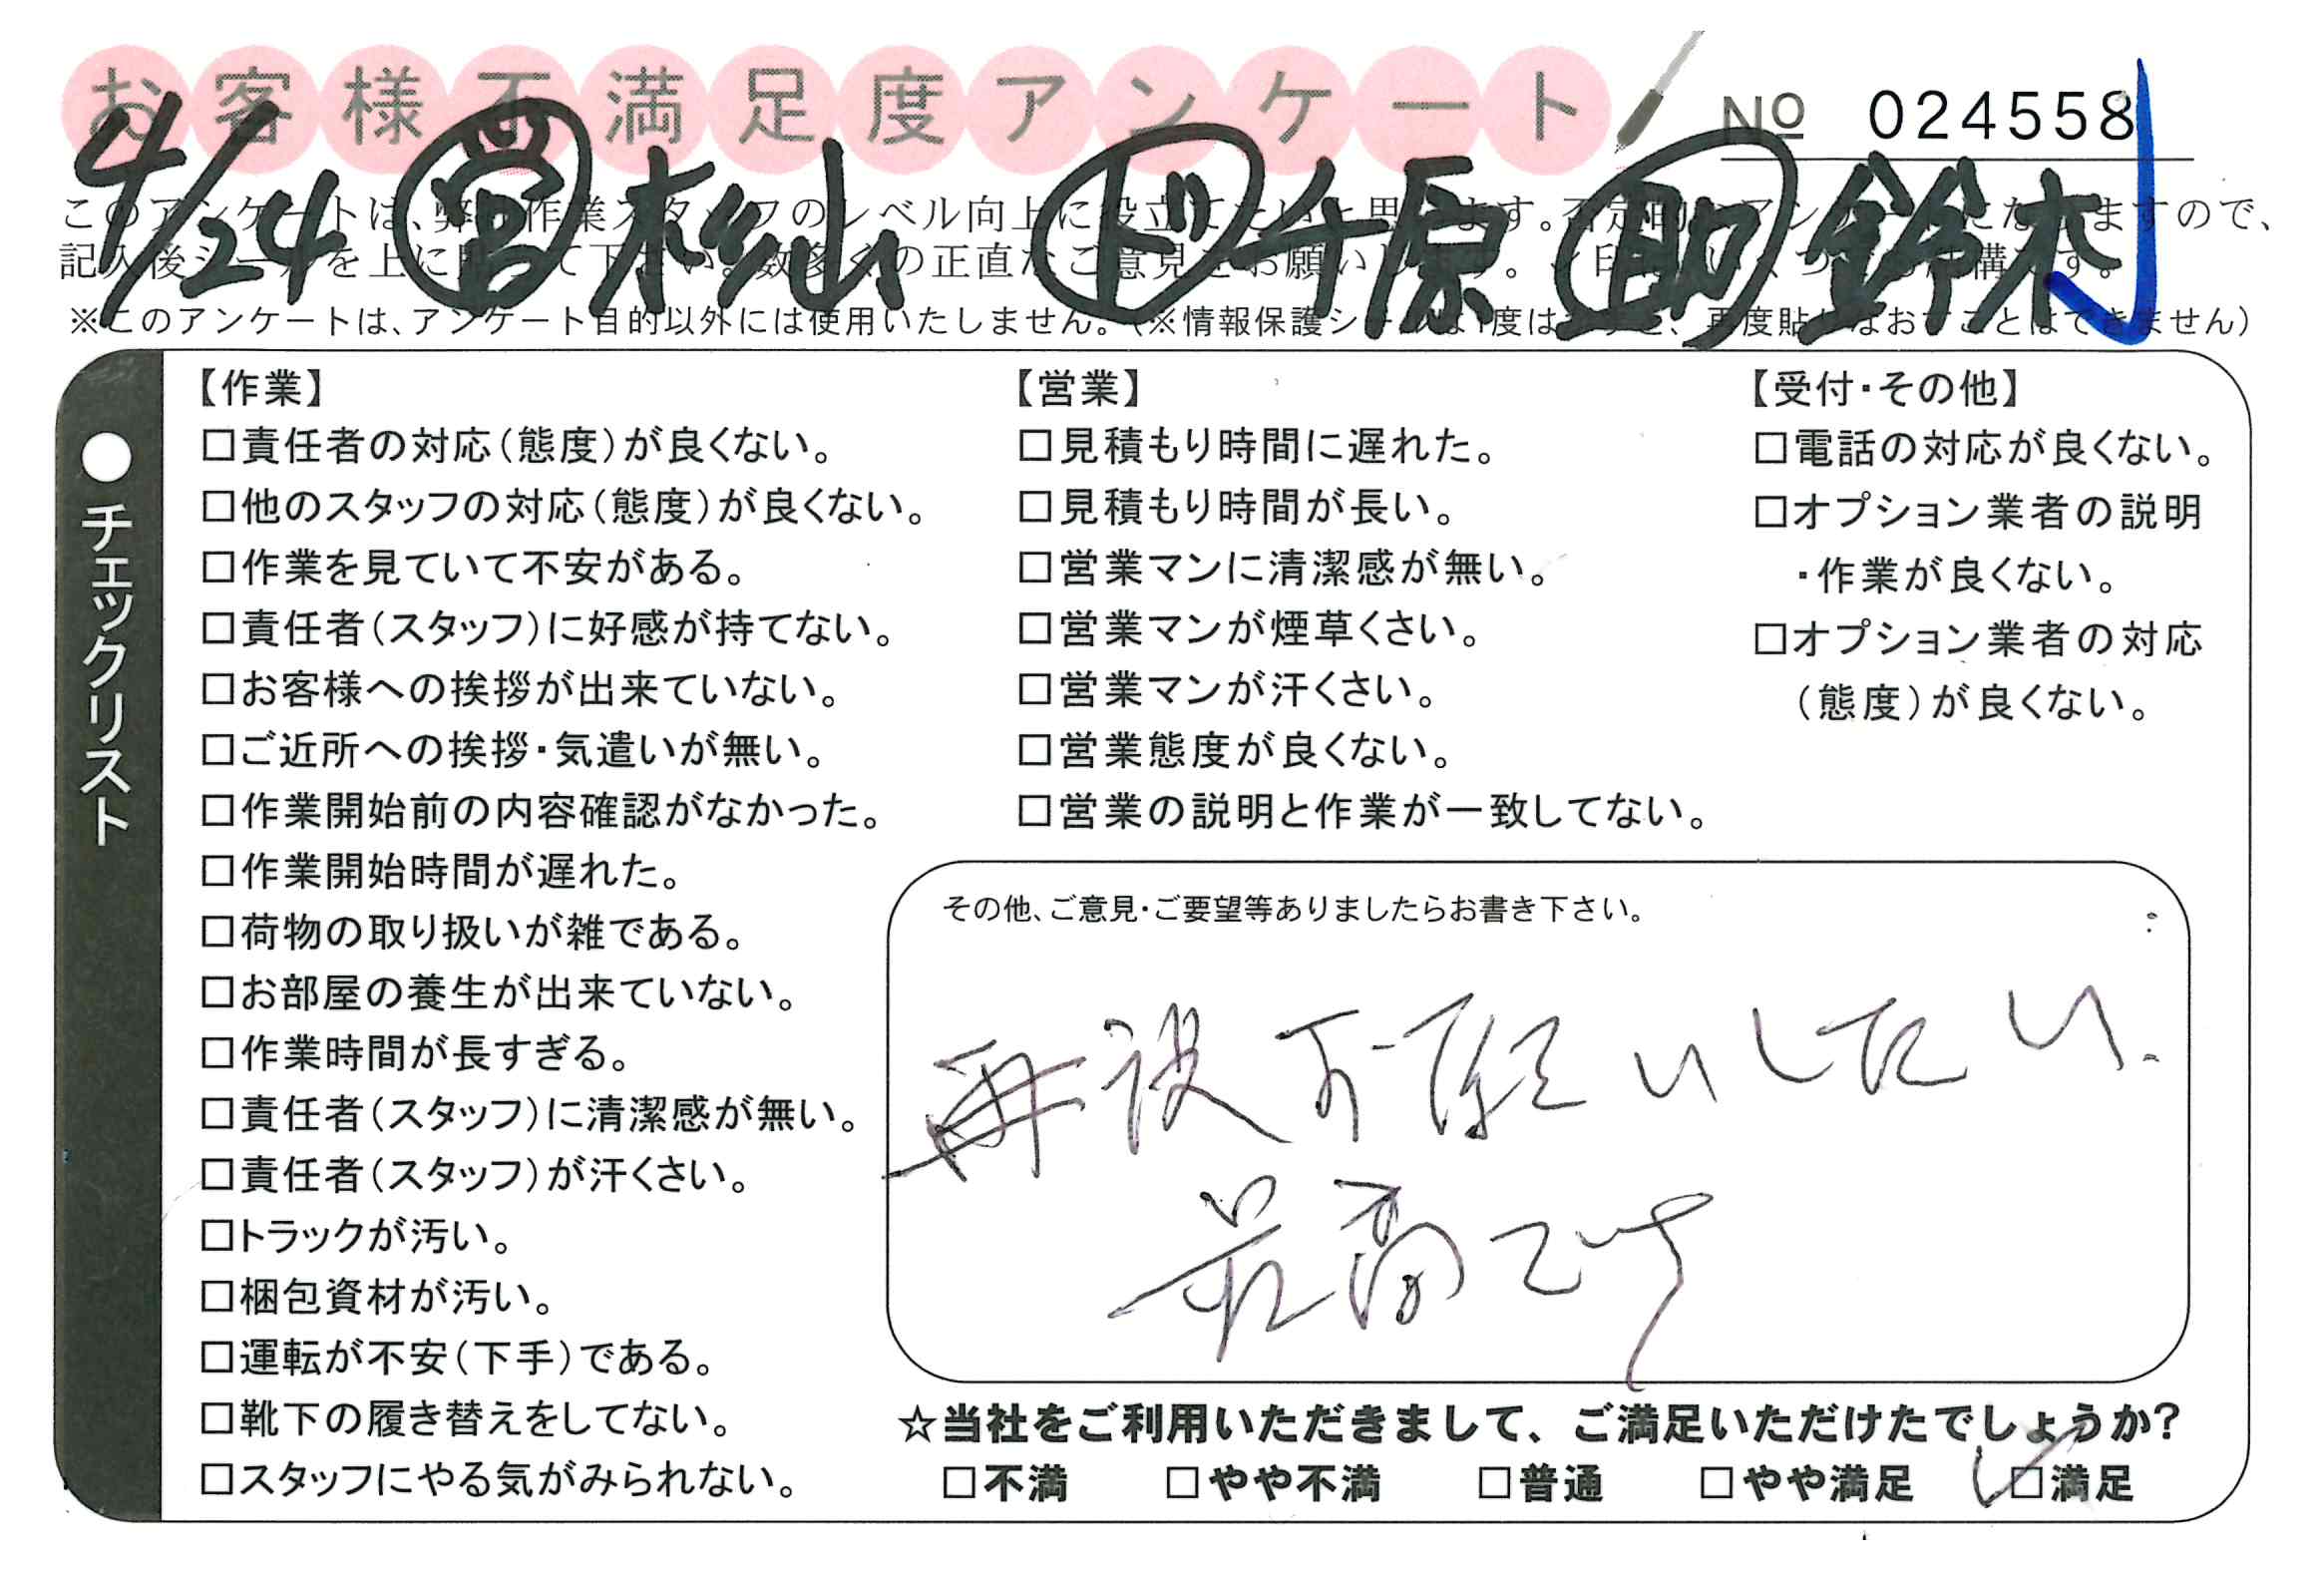 お客様不満足度アンケート
№ 024558
4/24 営 杉山 ド 千原 助 鈴木
このアンケートは、弊社作業スタッフのレベル向上に役立てたいと思います。否定的なアンケートになりますので、
記入後シールを上に貼って下さい。数多くの正直なご意見をお願いします。レ印はいくつでも結構です。
※このアンケートは、アンケート目的以外には使用いたしません。(※情報保護シールは1度はがすと、再度貼りなおすことはできません)
●チェックリスト
【作業】
□責任者の対応(態度)が良くない。
□他のスタッフの対応(態度)が良くない。
□作業を見ていて不安がある。
□責任者(スタッフ)に好感が持てない。
□お客様への挨拶が出来ていない。
□ご近所への挨拶・気遣いが無い。
□作業開始前の内容確認がなかった。
□作業開始時間が遅れた。
□荷物の取り扱いが雑である。
□お部屋の養生が出来ていない。
□作業時間が長すぎる。
□責任者(スタッフ)に清潔感が無い。
□責任者(スタッフ)が汗くさい。
□トラックが汚い。
□梱包資材が汚い。
□運転が不安(下手)である。
□靴下の履き替えをしてない。
□スタッフにやる気がみられない。
【営業】
□見積もり時間に遅れた。
□見積もり時間が長い。
□営業マンに清潔感が無い。
□営業マンが煙草くさい。
□営業マンが汗くさい。
□営業態度が良くない。
□営業の説明と作業が一致してない。
【受付・その他】
□電話の対応が良くない。
□オプション業者の説明
・作業が良くない。
□オプション業者の対応
(態度)が良くない。
その他、ご意見・ご要望等ありましたらお書き下さい。
再度お願いしたい
最高です
☆当社をご利用いただきまして、ご満足いただけたでしょうか?
□不満 □やや不満 □普通 □やや満足 ☑満足